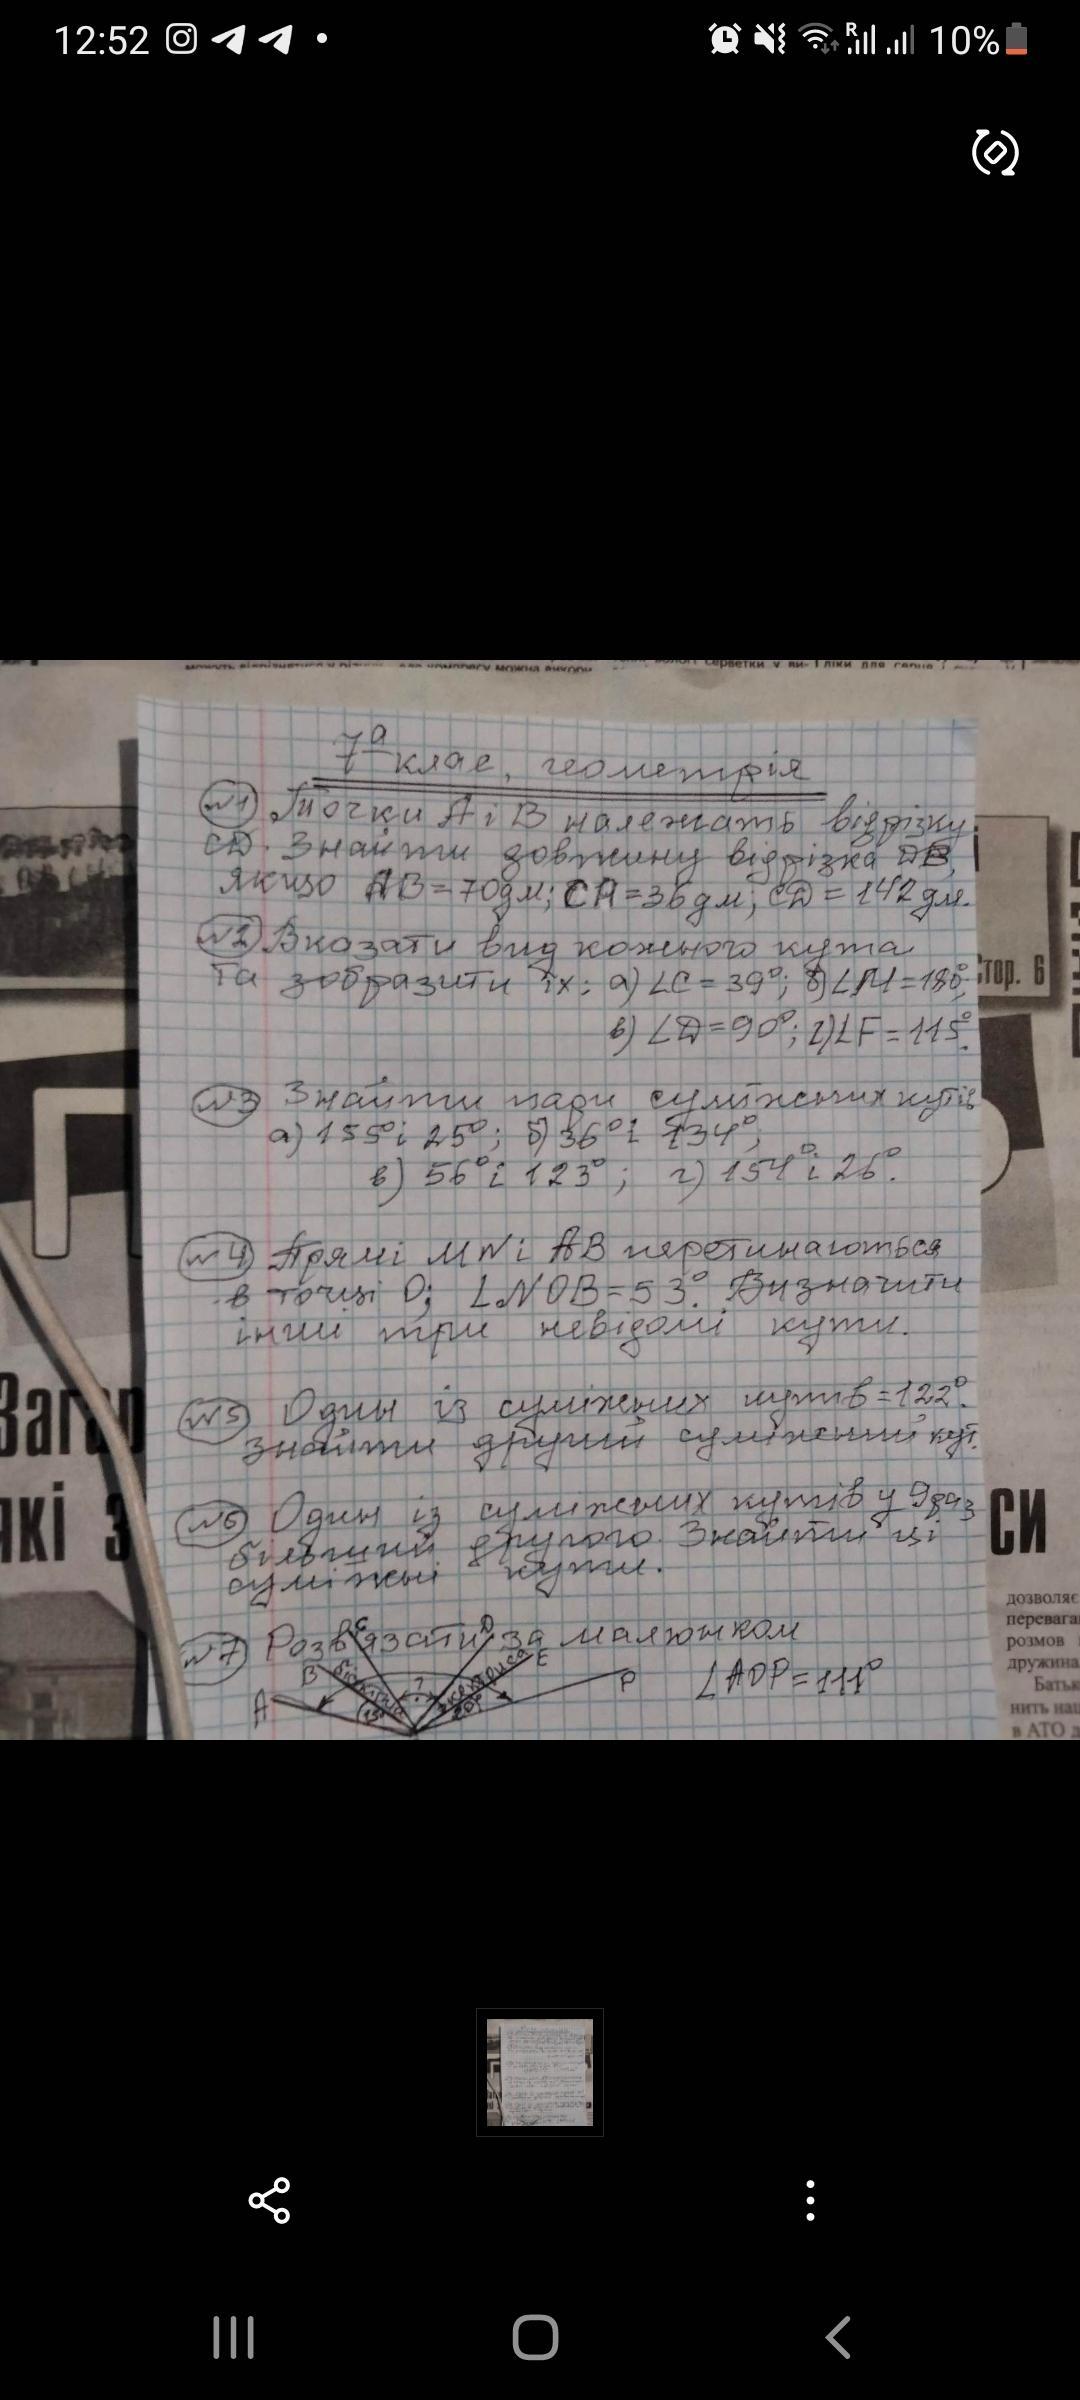 12:52
R
10%
7а клас, геометрія
№1 Точки А і В належать відрізку
CD. Знайти довжину відрізка DB,
якщо AB = 70дм; CA = 36дм; CD = 142 дм.
№2 Вказати вид кожного кута
та зобразити їх: а) ∠C = 39°; б) ∠M = 180°;
в) ∠D = 90°; г) ∠F = 115°.
№3 Знайти пари суміжних кутів
а) 155° і 25°; б) 36° і 134°;
в) 56° і 123°; г) 154° і 26°.
№4 Прямі MN і AB перетинаються
в точці O; ∠NOB = 53°. Визначити
інші три невідомі кути.
№5 Один із суміжних кутів = 122°.
Знайти другий суміжний кут.
№6 Один із суміжних кутів у 9 раз
більший другого. Знайти ці
суміжні кути.
№7 Розв'язати за малюнком
A B C ? D E P ∠AOP = 111°
Загар
які з
тор. 6
СИ
дозволяє
перевага
розмов
дружина
Батьк
нить наш
в АТО д